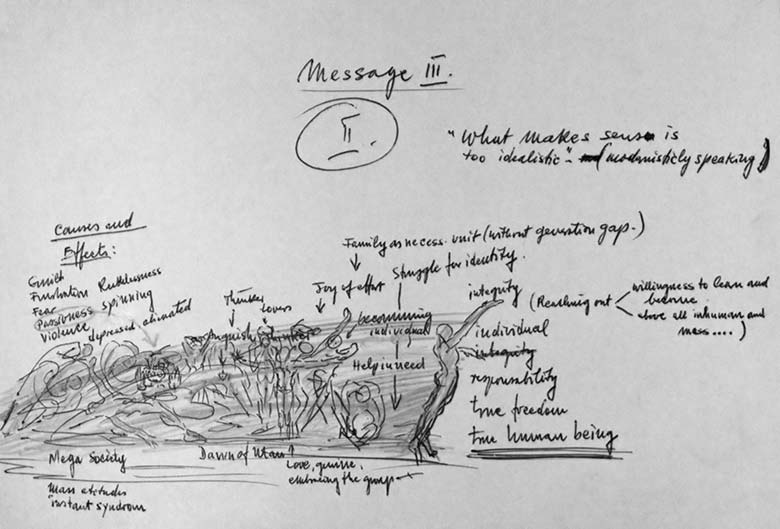 Message III.
II.
"What makes sense is
too idealistic" - (modernisticly speaking)
Causes and
Effects:
Guilt
Frustration Ruthlessness
Fear
Passioness spinning
Violence
depressed. alienated
Thinker
Lovers
Family as necess. unit (without generation gap.)
Joy of effort
Struggle for identity.
becomming
individual
Help in need
integrity
individual
integrity
responsability
true freedom
true human being
(Reaching out
willingness to learn and
become
above all inhuman and
mess....)
Mega Society
Mass atitudes
"instant syndrom
Dawn of Man
Love, genuine,
embracing the group